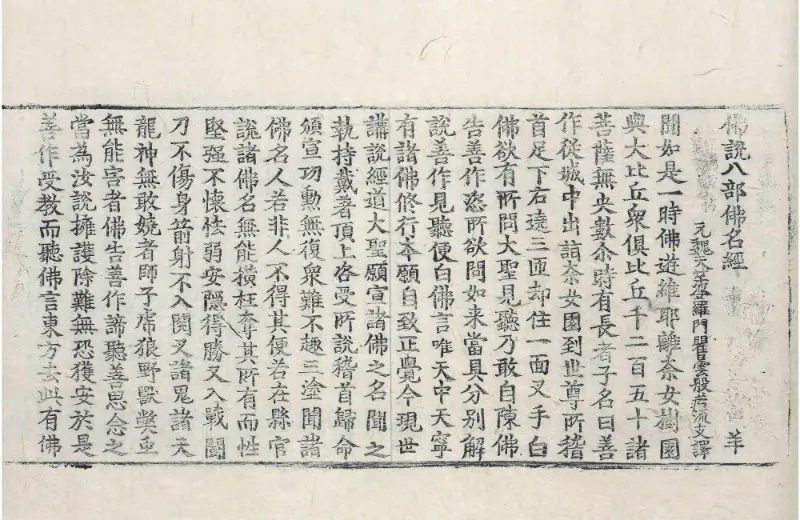 佛說八部佛名經 羊
元魏天竺婆羅門瞿曇般若流支譯
聞如是一時佛遊維耶離柰女樹園
與大比丘衆俱比丘千二百五十諸
菩薩無央數尒時有長者子名曰善
作從城中出詣柰女園到世尊所稽
首足下右遶三匝却住一面叉手白
佛欲有所問大聖見聽乃敢自陳佛
告善作恣所欲問如來當具分別解
說善作見聽便白佛言唯天中天寧
有諸佛修行本願自致正覺今現世
講說經道大聖願宣諸佛之名聞之
執持戴著頂上啓受所說稽首歸命
頒宣功勳無復衆難不趣三塗聞諸
佛名人若非人不得其便若在縣官
說諸佛名無能橫枉奪其所有而性
堅强不懷怯弱安隱得勝又入戰鬪
刀不傷身箭射不入閱叉諸鬼諸天
龍神無敢嬈者師子虎狼野獸弊虫
無能害者佛告善作諦聽善思念之
當為汝說擁護除難無恐獲安於是
善作受教而聽佛言東方去此有佛